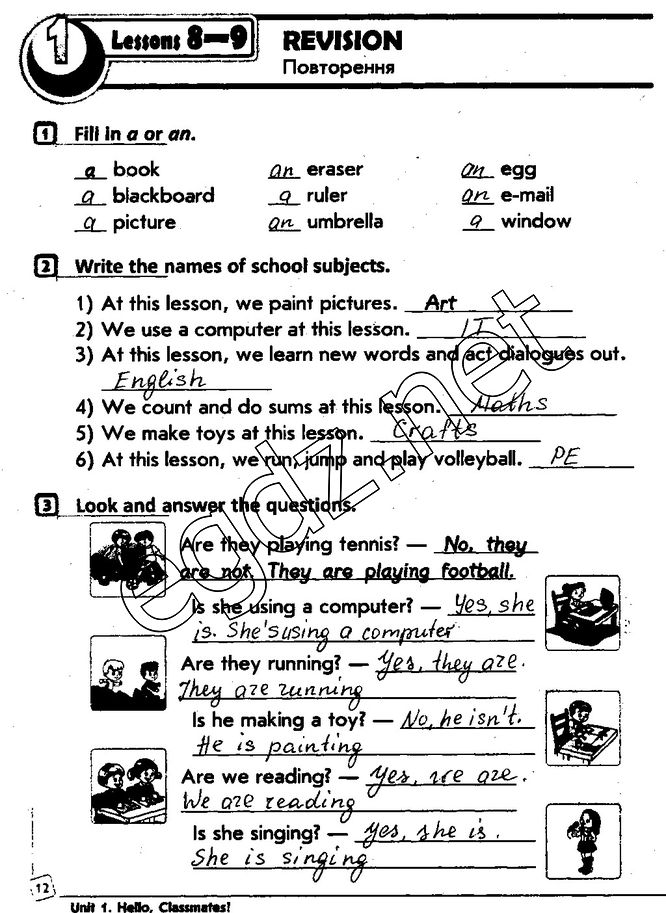 1 Lessons 8—9 REVISION
Повторення
1 Fill in a or an.
a book an eraser an egg
a blackboard a ruler an e-mail
a picture an umbrella a window
2 Write the names of school subjects.
1) At this lesson, we paint pictures. Art
2) We use a computer at this lesson. IT
3) At this lesson, we learn new words and act dialogues out.
English
4) We count and do sums at this lesson. Maths
5) We make toys at this lesson. Crafts
6) At this lesson, we run, jump and play volleyball. PE
3 Look and answer the questions.
Are they playing tennis? — No, they
are not. They are playing football.
Is she using a computer? — Yes, she
is. She's using a computer
Are they running? — Yes, they are.
They are running
Is he making a toy? — No, he isn't.
He is painting
Are we reading? — Yes, we are.
We are reading
Is she singing? — Yes, she is.
She is singing
12
Unit 1. Hello, Classmates!
egdz.net